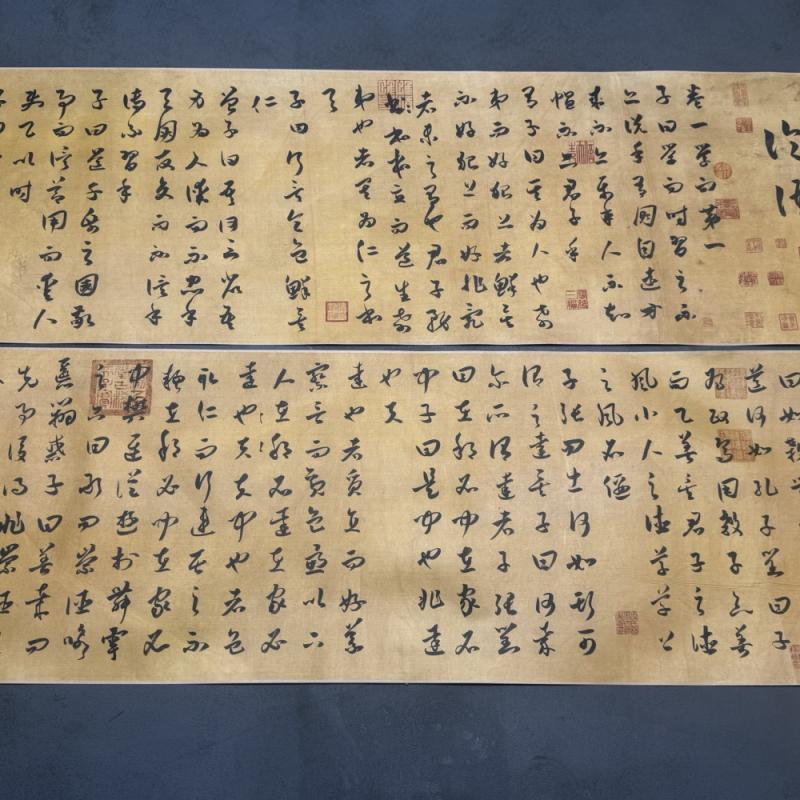 論語
卷一学而第一
子曰学而时習之不
亦说乎有朋自遠方
来不亦樂乎人不知
愠不亦君子乎
有子曰其为人也孝
弟而好犯上者鲜矣
不好犯上而好作乱
者未之有也君子務
本本立而道生孝
弟也者其为仁之本
与
子曰巧言令色鲜矣
仁
曾子曰吾日三省吾
身为人谋而不忠乎
与朋友交而不信乎
傳不習乎
子曰道千乘之国敬
事而信节用而爱人
使民以时
道何如孔子对曰子
为政焉用殺子欲善
而民善矣君子之德
风小人之德草草上
之风必偃
子张问士何如斯可
谓之達矣子曰何哉
尔所谓達者子张对
曰在邦必闻在家必
闻子曰是闻也非達
也夫
達也者质直而好義
察言而观色慮以下
人在邦必達在家必
達也夫夫闻也者色
取仁而行違居之不
疑在邦必闻在家必
闻樊遲從遊於舞雩
之下曰敢问崇德修
慝辨惑子曰善哉问
先事後得非崇德